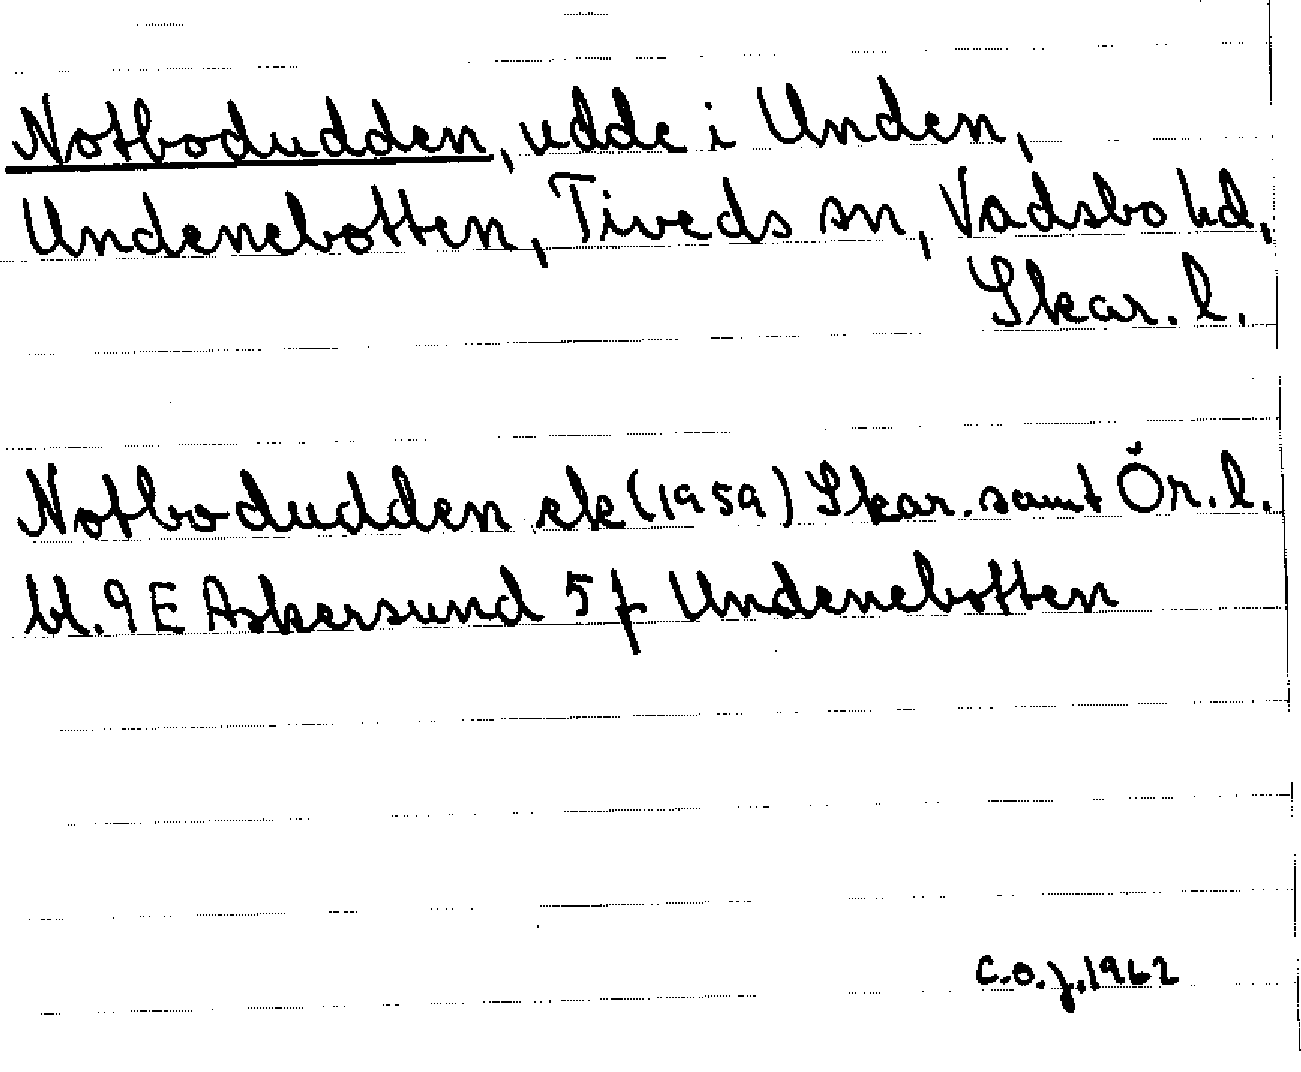 Notbodudden, udde i Unden,
Undenebotten, Tiveds sn, Vadsbo hd,
Skar. l.
Notbodudden ek (1959) Skar. samt Ör. l.
bl. 9E Askersund 5f Undenebotten
C.O.J., 1962